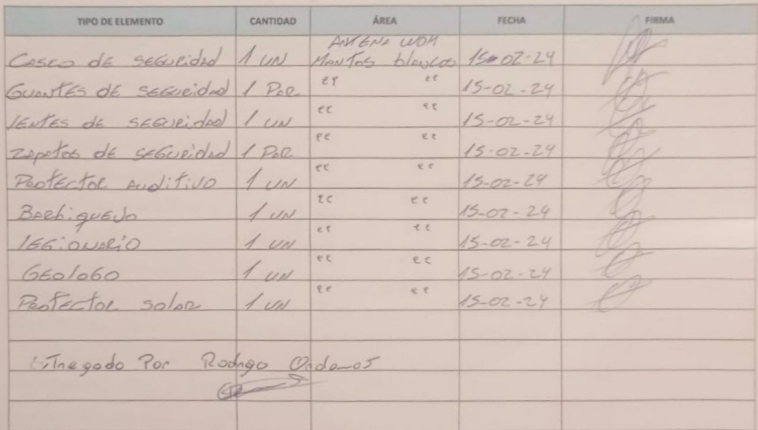 TIPO DE ELEMENTO CANTIDAD ÁREA FECHA FIRMA
Casco de seguridad 1 UN ANTENA WOM Mantos blancos 15-02-24
Guantes de seguridad 1 Par " " 15-02-24
Lentes de seguridad 1 UN " " 15-02-24
Zapatos de seguridad 1 Par " " 15-02-24
Protector Auditivo 1 UN " " 15-02-24
Barbiquejo 1 UN " " 15-02-24
Legionario 1 UN " " 15-02-24
Geologo 1 UN " " 15-02-24
Protector solar 1 UN " " 15-02-24
Entregado Por Rodrigo